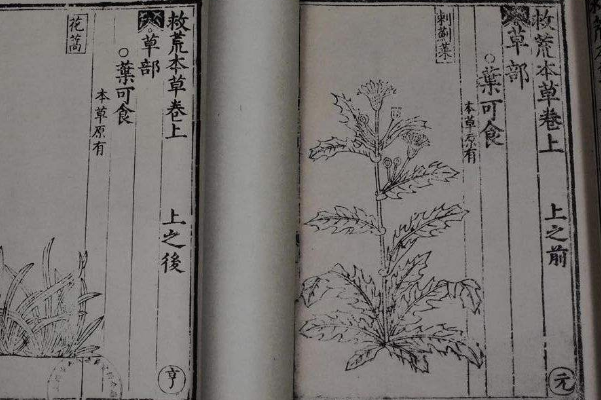 救荒本草卷上
上之前
元
草部
○葉可食
本草原有
刺薊菜
救荒本草卷上
上之後
亨
草部
○葉可食
本草原有
花蒿